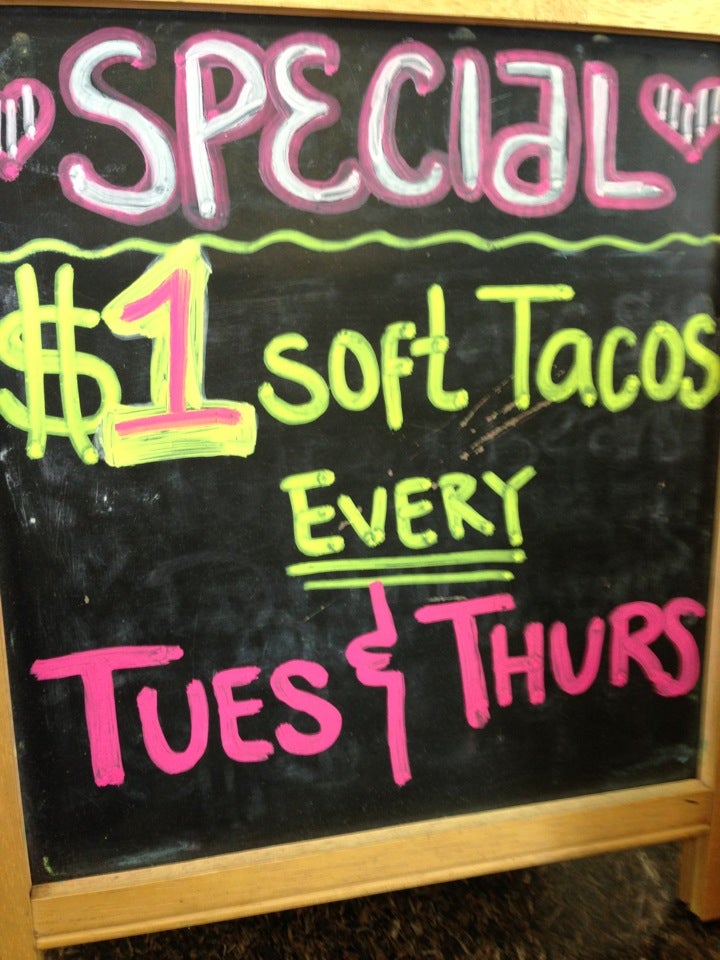 SPECIAL
$1 soft Tacos
EVERY
TUES & THURS